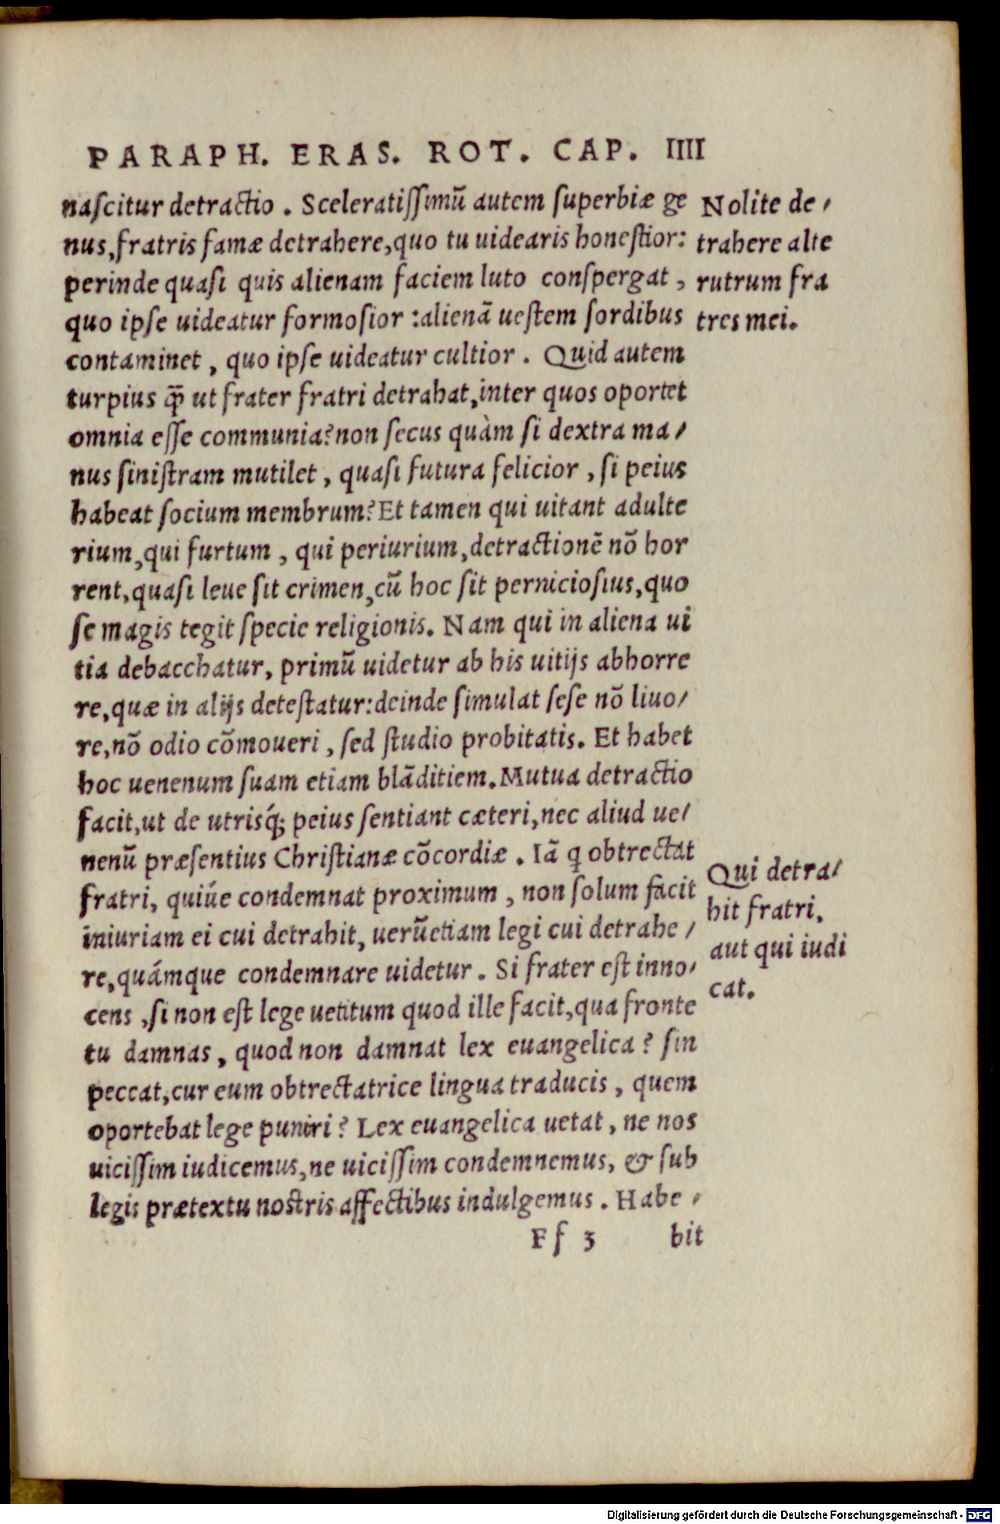 PARAPH. ERAS. ROT. CAP. IIII
naſcitur detractio. Sceleratiſſimũ autem ſuperbiæ ge
nus,fratris famæ detrahere,quo tu uidearis honeſtior:
perinde quaſi quis alienam faciem luto conſpergat,
quo ipſe uideatur formoſior :alienã ueſtem ſordibus
contaminet, quo ipſe uideatur cultior. Quid autem
turpius q̃ ut frater fratri detrahat,inter quos oportet
omnia eſſe communia?non ſecus quàm ſi dextra ma/
nus ſiniſtram mutilet, quaſi futura felicior, ſi peius
habeat ſocium membrum?Et tamen qui uitant adulte
rium,qui furtum, qui periurium,detractionẽ nõ hor
rent,quaſi leue ſit crimen,cũ hoc ſit pernicioſius,quo
ſe magis tegit ſpecie religionis. Nam qui in aliena ui
tia debacchatur, primũ uidetur ab his uitijs abhorre
re,quæ in alijs deteſtatur:deinde ſimulat ſeſe nõ liuo/
re,nõ odio cõmoueri, ſed ſtudio probitatis. Et habet
hoc uenenum ſuam etiam blãditiem. Mutua detractio
facit,ut de utriſq́; peius ſentiant cæteri,nec aliud ue/
nenũ præſentius Chriſtianæ cõcordiæ. Iã q obtrectat
fratri, quiúe condemnat proximum, non ſolum facit
iniuriam ei cui detrahit, uerũetiam legi cui detrahe/
re,quámque condemnare uidetur. Si frater eſt inno/
cens ,ſi non eſt lege uetitum quod ille facit,qua fronte
tu damnas, quod non damnat lex euangelica? ſin
peccat,cur eum obtrectatrice lingua traducis, quem
oportebat lege puniri? Lex euangelica uetat, ne nos
uiciſſim iudicemus,ne uiciſſim condemnemus, & ſub
legis prætextu noſtris affectibus indulgemus. Habe/
Ff 3 bit
Nolite de/
trahere alte
rutrum fra
tres mei.
Qui detra/
hit fratri,
aut qui iudi
cat.
Digitalisierung gefördert durch die Deutsche Forschungsgemeinschaft - DFG